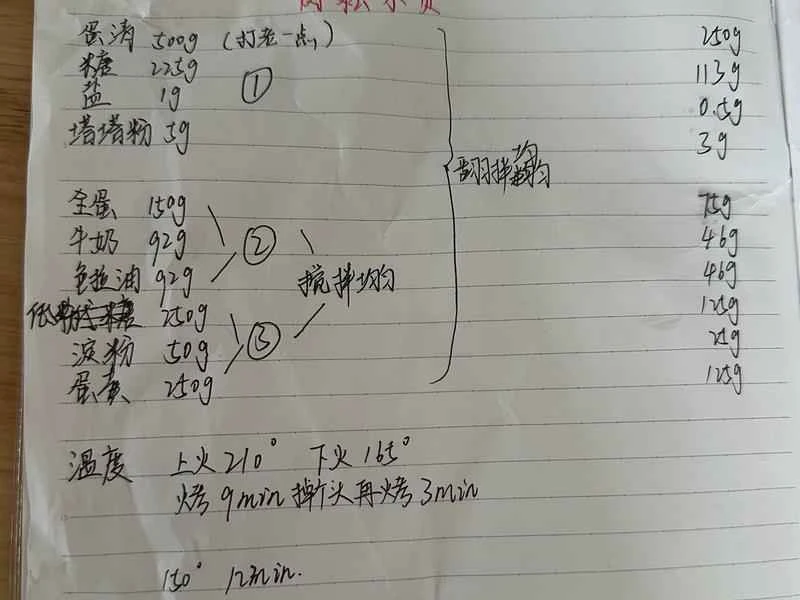 蛋清 500g (打老一点) 250g
糖 225g 113g
盐 1g ① 0.5g
塔塔粉 5g 3g
翻拌均匀
全蛋 150g 75g
牛奶 92g ② 46g
色拉油 92g 搅拌均匀 46g
低 250g 125g
淀粉 50g ③ 25g
蛋黄 250g 125g
温度 上火210° 下火165°
烤9min掉头再烤3min
150° 12min.